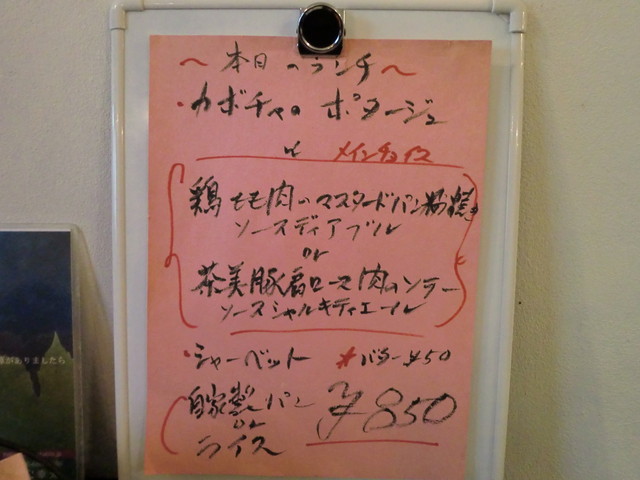 ～本日のランチ～
・カボチャのポタージュ
メインチョイス
鶏もも肉のマスタードパン粉焼き
ソースディアブル
or
茶美豚肩ロース肉のソテー
ソースシャルキティエール
・シャーベット
*バター¥50
自家製パン
or
ライス
¥850
がありましたら